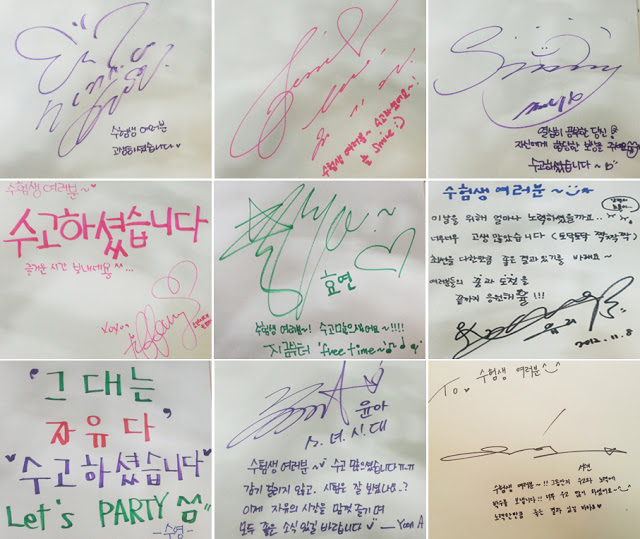 수험생 여러분
고생하셨습니다
수험생 여러분~ 수고하셨어요~!
늘 smile :)
Sunny
열심히 공부한 당신!
자신에게 합당한 보상을 주세요
수고하셨습니다~
수험생 여러분~
수고하셨습니다
즐거운 시간 보내세용 ^^...
xoxo,
Tiffany
효연
수험생 여러분~! 수고많으셨어요~!!!!
지금부터 "free time"
수험생 여러분~
이날을 위해 얼마나 노력하셨을까요..
너무너무 고생 많았습니다 (토닥토닥 쪽쪽쪽)
최선을 다한만큼 좋은 결과 있기를 바래요~
여러분들의 꿈과 도전을
끝까지 응원해용 !!!
유리
2012.11.8
"그대는
자유다"
수고하셨습니다
Let's PARTY
-수영-
윤아
소.녀.시.대
수험생 여러분~ 수고 많으셨습니다 ㅠㅠ
감기 걸리지 않고, 시험은 잘 보셨나요..?
이제 자유의 시간을 맘껏 즐기며
모두 좋은 소식 있길 바랍니다
-Yoon A
To. 수험생 여러분^^
서현
수험생 여러분~!! 그동안의 수고와 노력에
박수를 보냅니다!! 너무 수고 많이 하셨어요~^^
노력한만큼 좋은 결과 있길 바래요